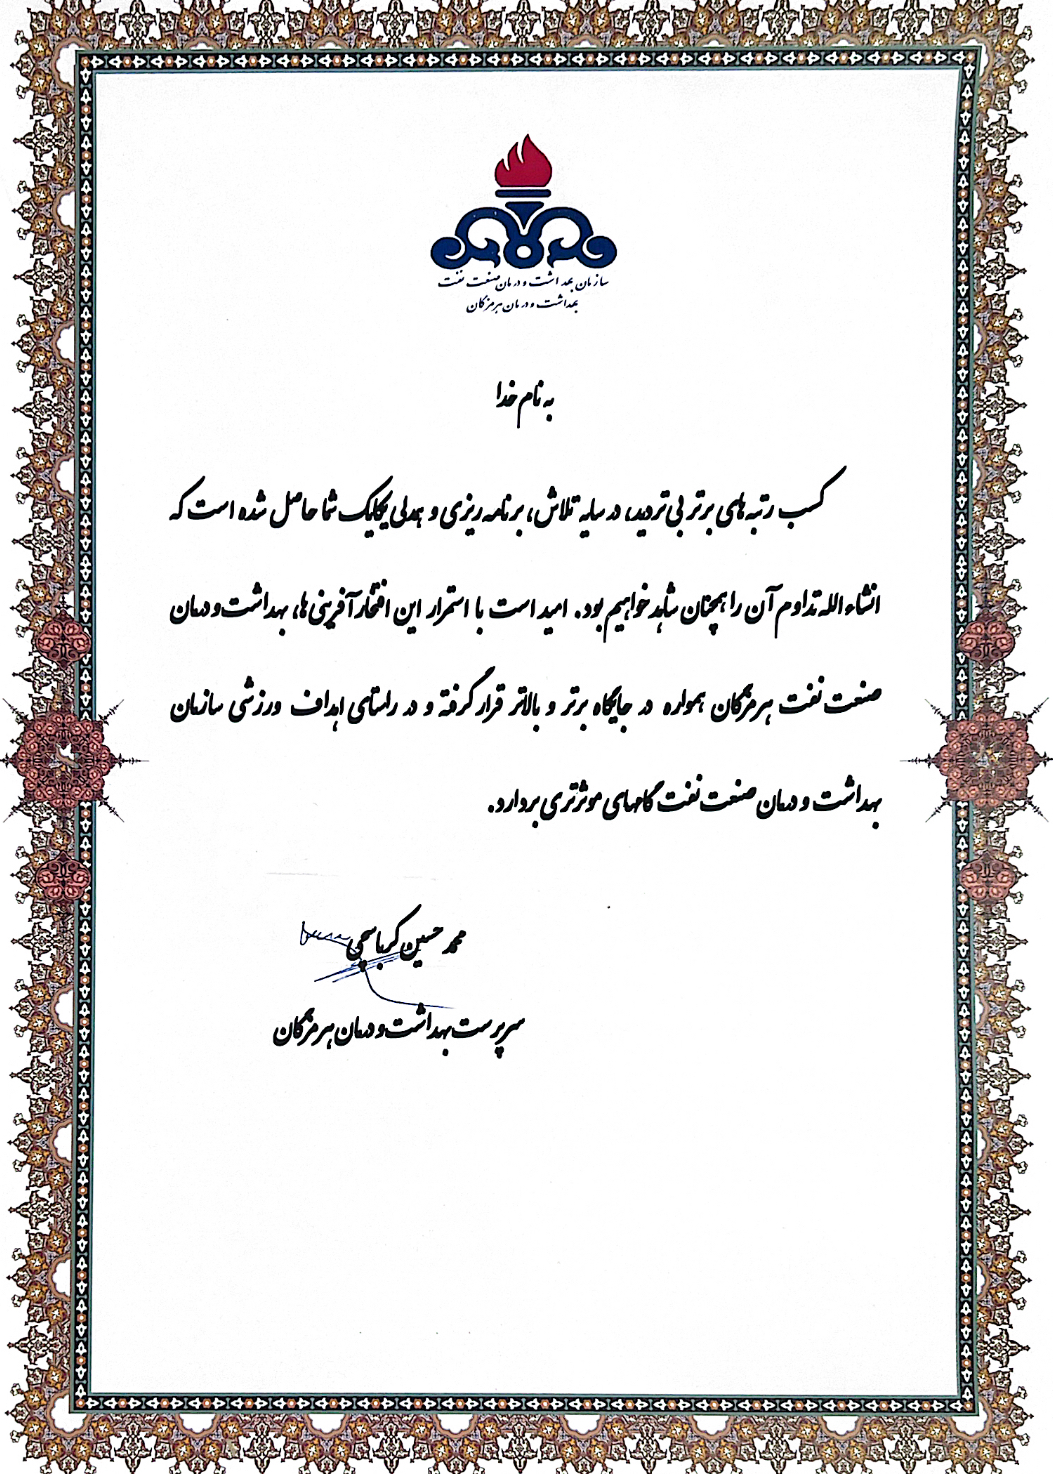 سازمان بهداشت و درمان صنعت نفت
بهداشت و درمان هرمزگان
به نام خدا
کسب رتبه های برتر بی تردید، در سایه تلاش، برنامه ریزی و همدلی یکایک شما حاصل شده است که
انشاء الله تداوم آن را همچنان شاهد خواهیم بود. امید است با استمرار این افتخار آفرینی ها، بهداشت و درمان
صنعت نفت هرمزگان همواره در جایگاه برتر و بالاتر قرار گرفته و در راستای اهداف ورزشی سازمان
بهداشت و درمان صنعت نفت گامهای موثرتری بردارد.
محمد حسین کرباسچی
سرپرست بهداشت و درمان هرمزگان